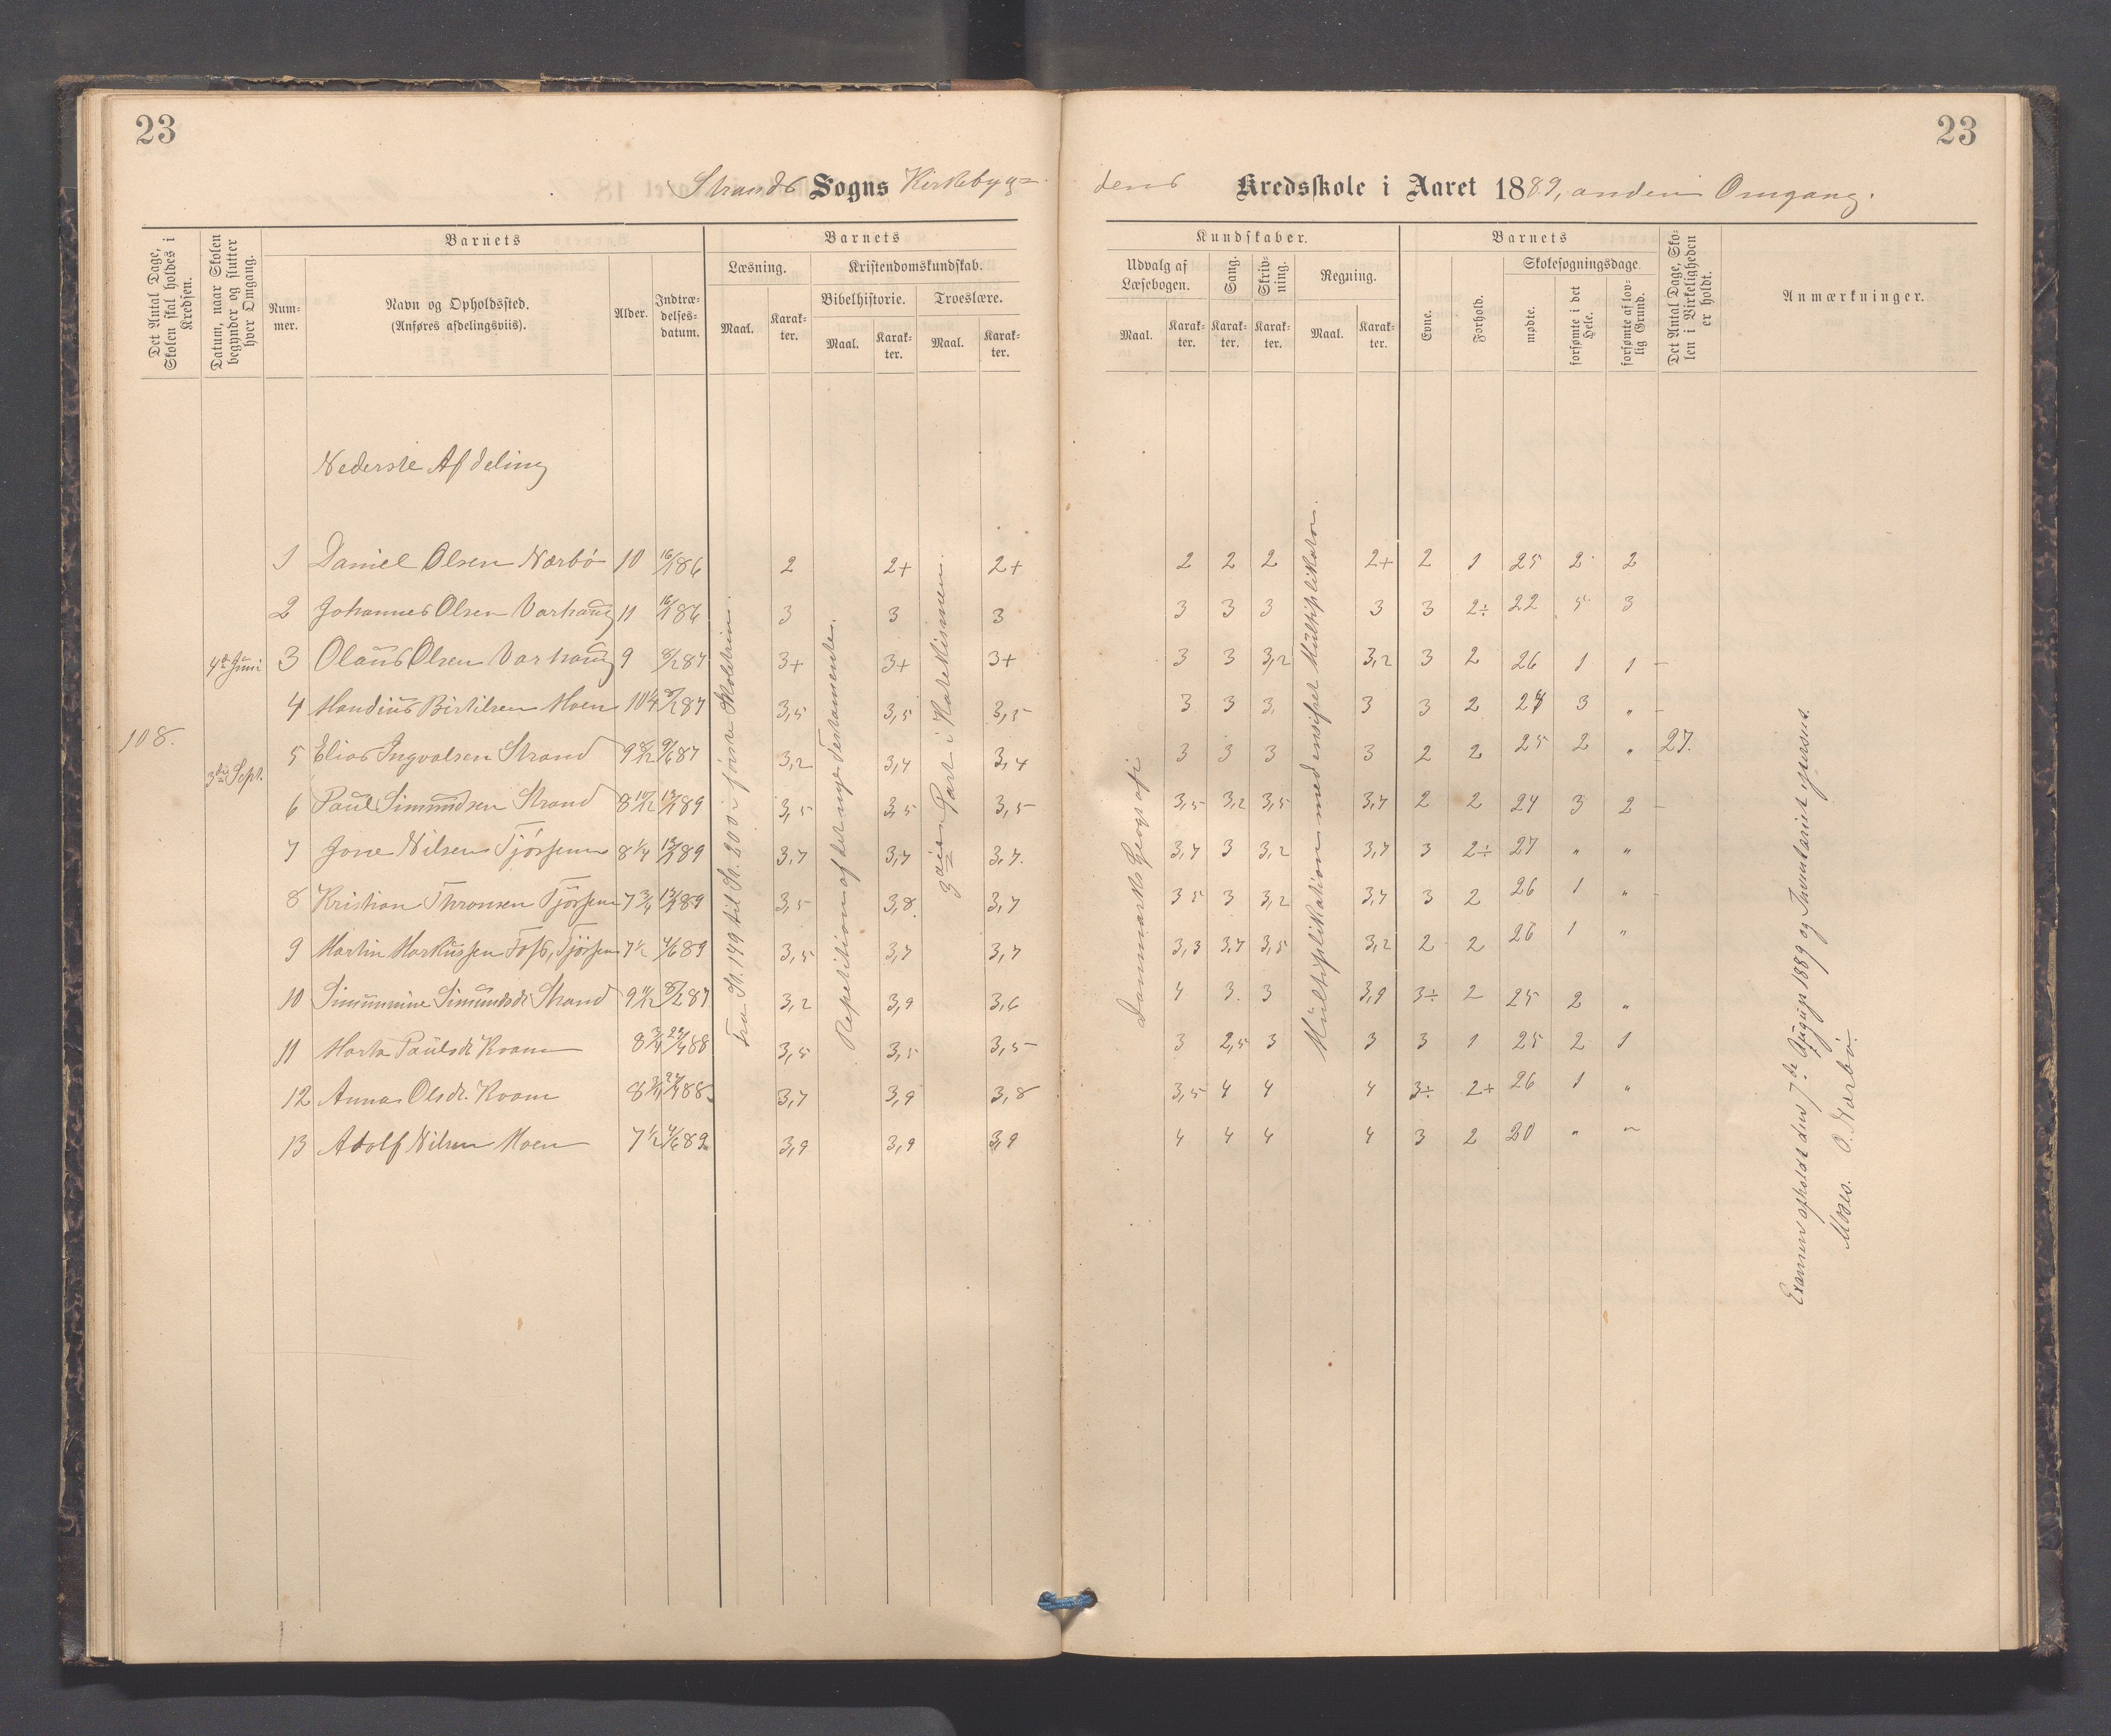 23
23
Strands Sogns Kirkebyg=
dens Kredsskole i Aaret 1889, anden Omgang.
Det Antal Dage, Skolen skal holdes i Kredsen.
Datum, naar Skolen begynder og slutter hver Omgang.
Barnets
Num-mer.
Navn og Opholdssted.
(Anføres afdelingsviis).
Alder.
Indtræ-delses-datum.
Barnets
Læsning.
Maal.
Karak-ter.
Kristendomskundskab.
Bibelhistorie.
Maal.
Karak-ter.
Troeslære.
Maal.
Karak-ter.
Kundskaber.
Udvalg af Læsebogen.
Maal.
Karak-ter.
Sang.
Karak-ter.
Skriv-ning.
Karak-ter.
Regning.
Maal.
Karak-ter.
Barnets
Evne.
Forhold.
Skolesøgningsdage.
mødte.
forsømte i det Hele.
forsømte af lov-lig Grund.
Det Antal Dage, Sko-len i Virkeligheden er holdt.
Anmærkninger.
Nederste Afdeling
1 Daniel Olsen Nærbö 10 16/1 86 2 2+ 2+ 2 2 2 2+ 2 1 25 2 2
2 Johannes Olsen Varhaug 11 16/1 86 3 3 3 3 3 3 3 3 2÷ 22 5 3
4de Juni 3 Olaus Olsen Varhaug 9 8/2 87 3+ 3+ 3+ 3 3 3,2 3,2 3 2 26 1 1
4 Mandius Birtilsen Moen 10 1/4 8/2 87 3,5 3,5 3,5 3 3 3 3 3 2 24 3 "
108. 5 Elias Ingvalsen Strand 9 8/12 9/6 87 3,2 3,4 3,4 3 3 3 3 2 2 25 2 " 27.
3die Sept.
6 Paul Simundsen Strand 8 10/12 89 3,5 3,5 3,5 3,5 3,2 3,5 3,7 2 2 24 3 2
7 Jone Nilsen Tjössem 8 1/4 89 3,7 3,7 3,7. 3,7 3 3,2 3,7 3 2÷ 27 " "
8 Kristian Thronsen Tjössem 7 3/4 89 3,5 3,8 3,7 3 5 3 3,2 3,7 3 2 26 1 "
9 Martin Markussen Foss, Tjössem 7 1/2 4/6 89 3,5 3,7 3,7 3,3 3,7 3,5 3,2 2 2 26 1 "
10 Simunnine Simundsdt Strand 9 11/12 8/2 87 3,2 3,9 3,6 4 3 3 3,9 3÷ 2 25 2 "
11 Marta Paulsdt Kvam 8 3/4 88 3,5 3,5 3,5 3 2,5 3 3 3 1 25 2 1
12 Anna Olsdt. Kvam 8 3/4 88 3,7 3,9 3,8 3,5 4 4 4 3÷ 2+ 26 1 "
13 Adolf Nilsen Moen 7 1/2 4/6 89 3,9 3,9 3,9 4 4 4 4 3 2 20 " "
Fra St. 149 til St. 200 i förste Skoletrin.
Repetition af det nye Testamente.
3die Part i Katekismen.
Danmarks Geografi
Multiplikation med ensifret Multiplikator.
Examen afholdt den 7de August 1889 og Inventariet
Moses. O. Nærbö.